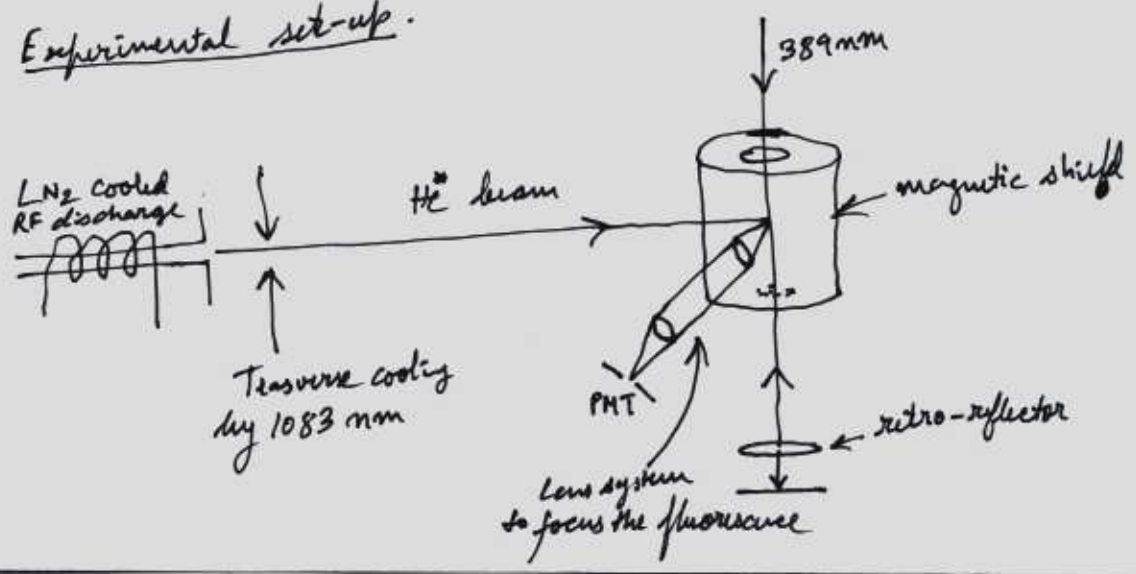 Experimental set-up.
389nm
LN2 cooled
RF discharge
He* beam
magnetic shield
Trasverse cooling
by 1083 nm
PMT
retro-reflector
Lens system
to focus the fluorescence